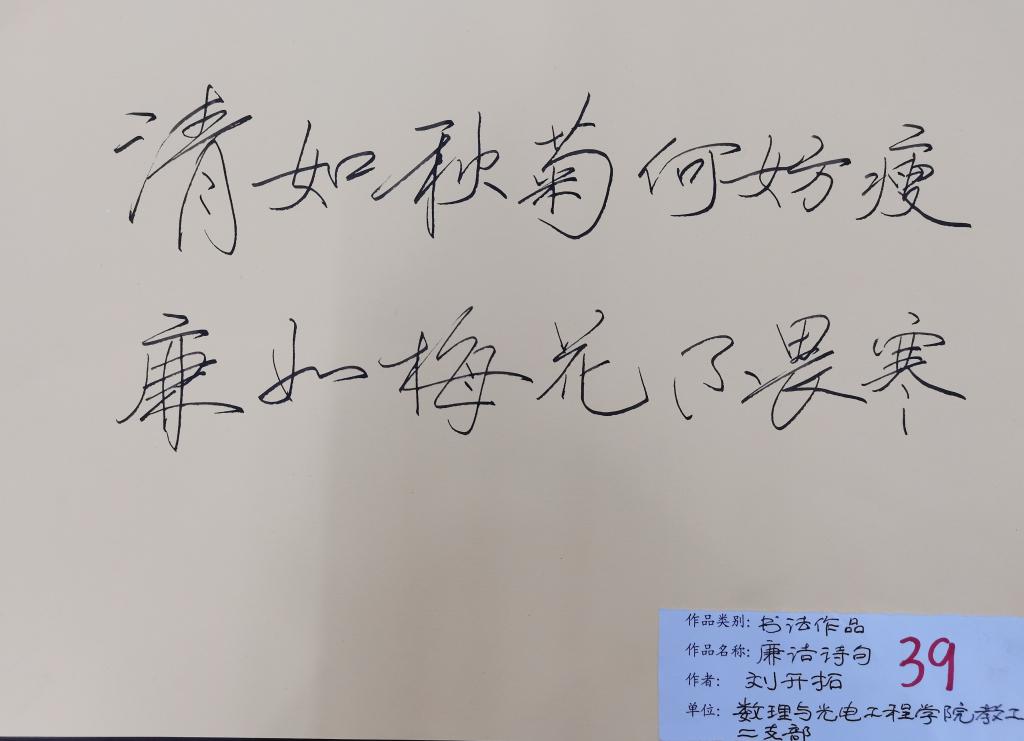 清如秋菊何妨瘦
廉如梅花不畏寒
作品类别: 书法作品
作品名称: 廉洁诗句
39
作者: 刘开拓
单位: 数理与光电工程学院教工
二支部